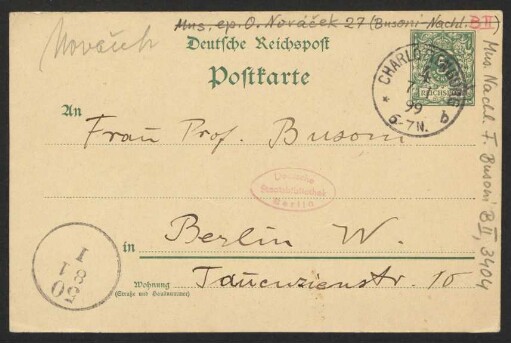 Mus. ep. O. Nováček 27 (Busoni-Nachl. B II)
Nováček
Deutsche Reichspost
Postkarte
REICHSPOST
CHARLOTTENBURG
99
6-7N.
* b
An
Frau Prof. Busoni
Deutsche
Staatsbibliothek
Berlin
in
Berlin W.
Wohnung
(Straße und Hausnummer)
Tauenzienstr. 10
Mus. Nachl. F. Busoni B II, 3404